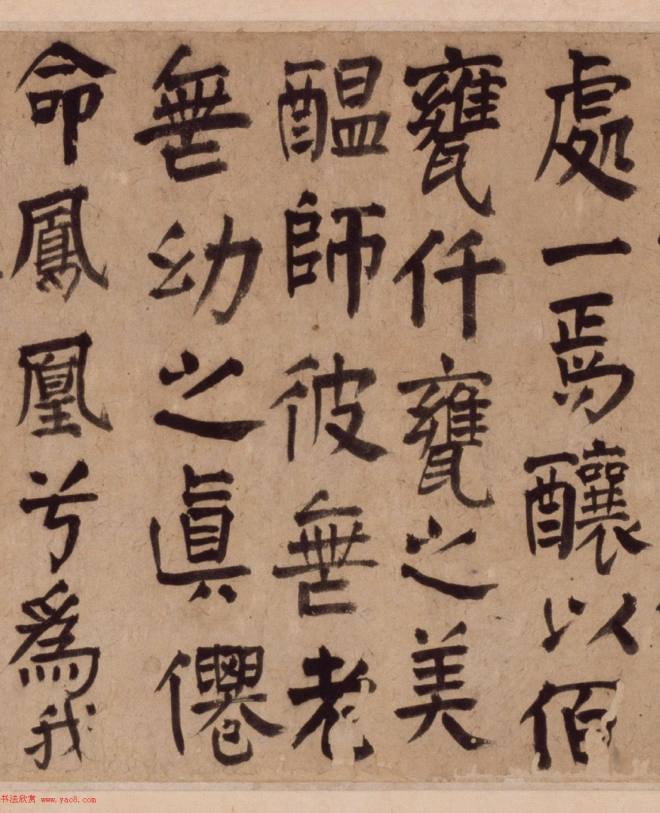 處一焉釀以佰
甕仟甕之美
醖師彼無老
無幼之眞僊
命鳳凰兮爲我
书法欣赏 www.yac8.com